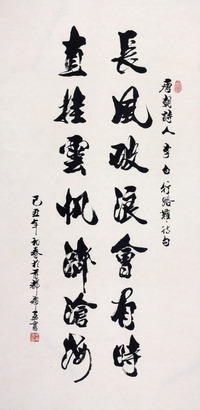 唐朝詩人李白行路難詩句
長風破浪會有時
直挂雲帆濟滄海
己丑年初春於首都